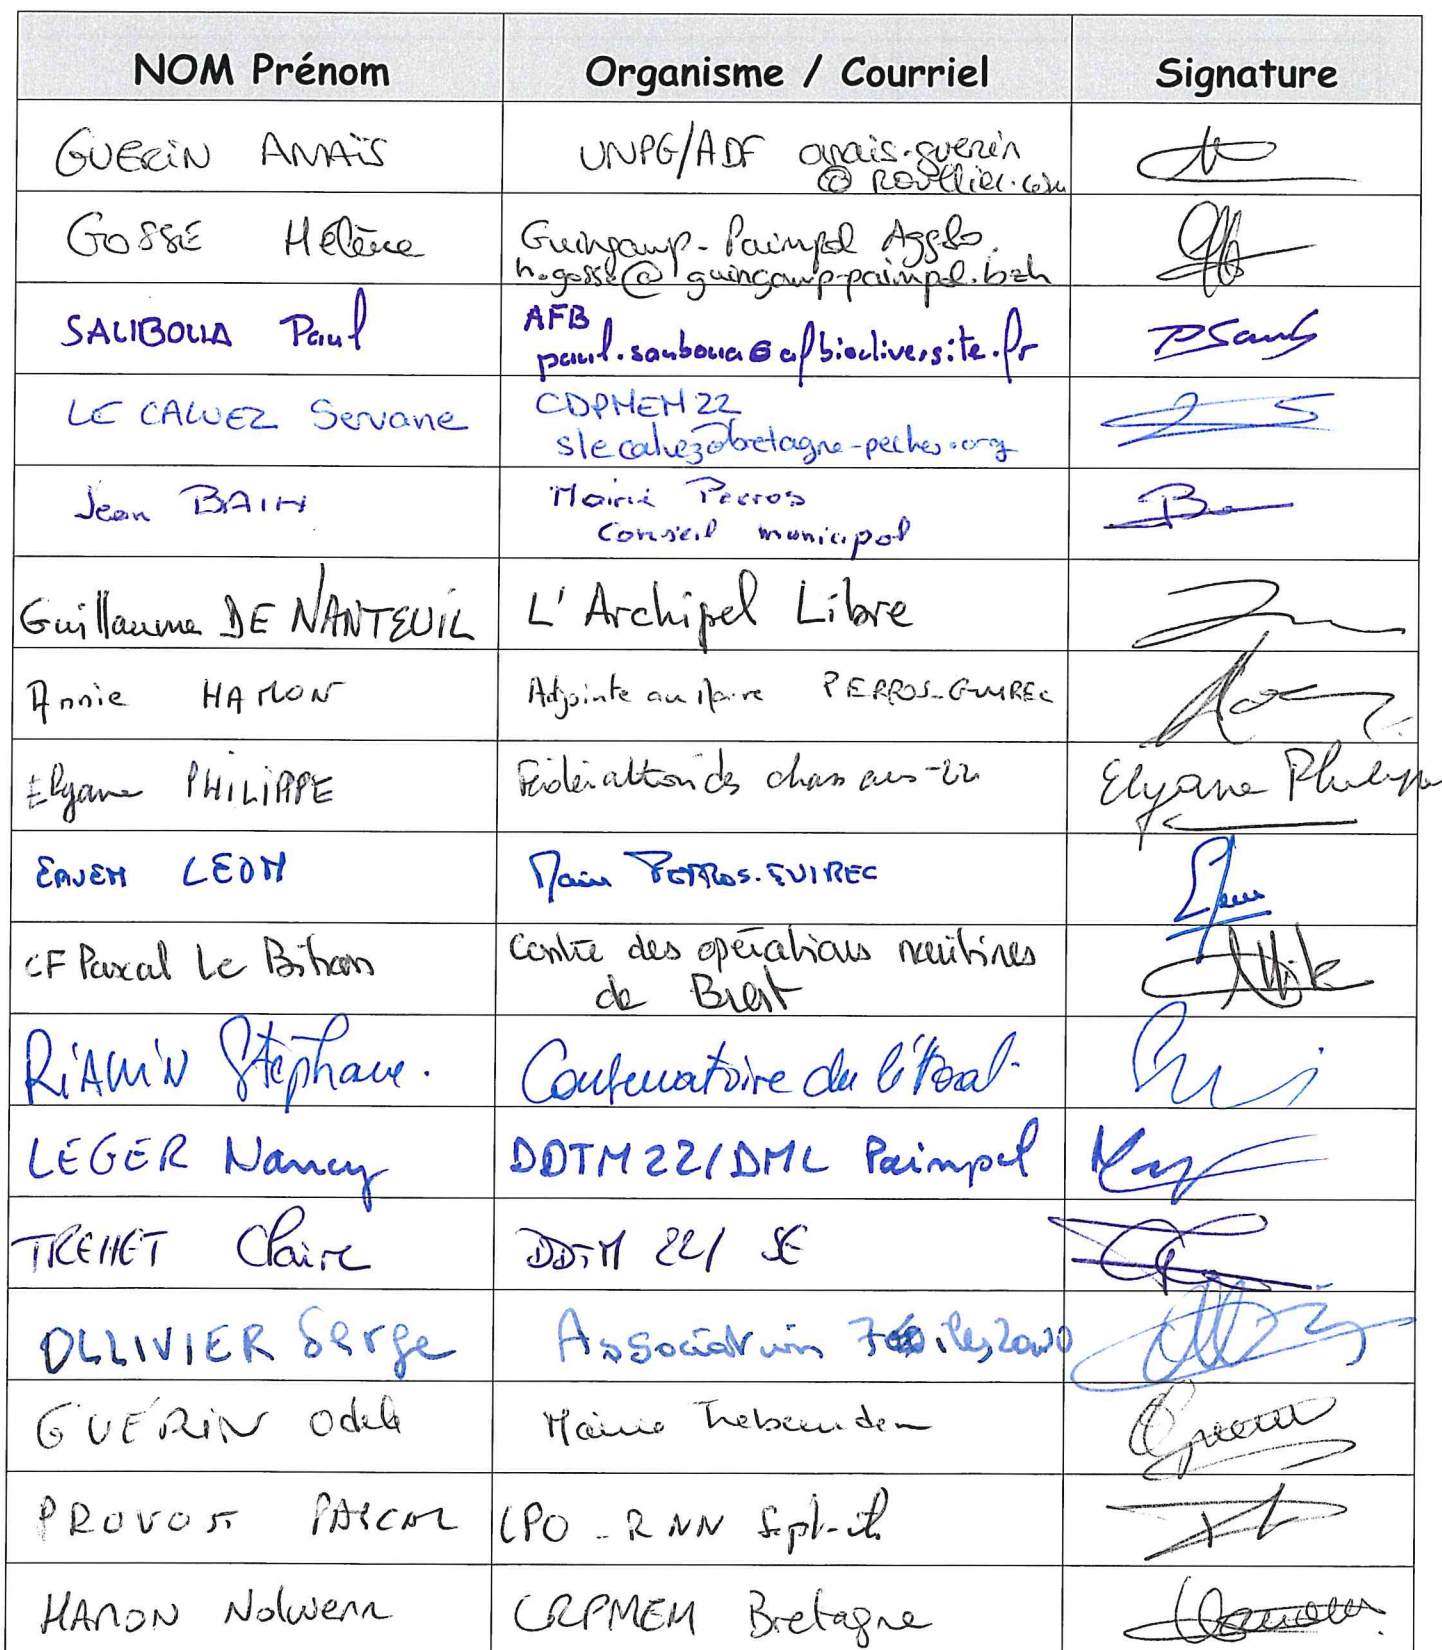 NOM Prénom Organisme / Courriel Signature
GUERIN ANAÏS UNPG/ADF anais.guerin
@ROULLIER.com
GOSSE Hélène Guingamp-Paimpol Agglo.
h.gosse@guingamp-paimpol.bzh
SAUBOUA Paul AFB
paul.sauboua@afbiodiversite.fr
LE CALVEZ Servane CDPMEM 22
slecalvez@bretagne-peches.org
Jean BAIN Mairie Perros
Conseil municipal
Guillaume DE NANTEUIL L'Archipel Libre
Annie HAMON Adjointe au Maire PERROS-GUIREC
Elyane PHILIPPE Fédération des chasseurs-22 Elyane Philippe
ERVEN LEON Maire PERROS-GUIREC
CF Pascal Le Bihan Centre des opérations maritimes
de Brest
RIALLIN Stéphane. Conservatoire du littoral.
LEGER Nancy DDTM22/DML Paimpol
TREHET Claire DDTM 22/ SE
OLLIVIER Serge Association 7 iles 2000
GUÉRIN Odile Mairie Trebeurden
PROVOST PASCAL LPO - RNN Sept-iles
HAMON Nolwenn CRPMEM Bretagne